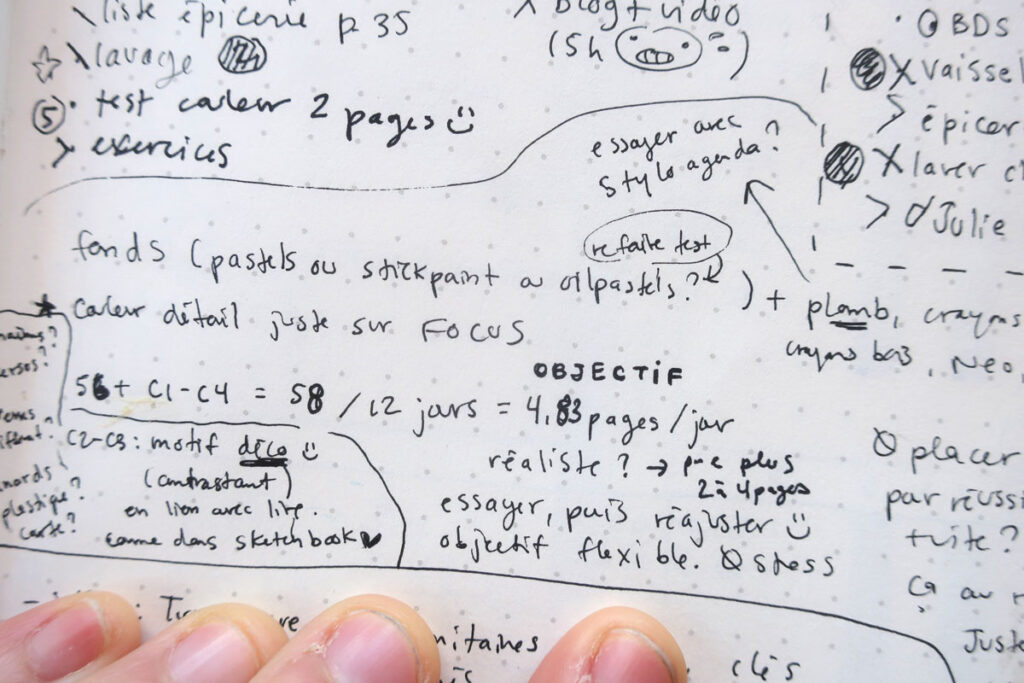 liste épicerie p.35
lavage
5 · test couleur 2 pages
> exercices
X blog + vidéo
(5h )
· BDS
X vaissel
> épicer
X laver c
> Ø Julie
essayer avec
stylo agenda?
refaite test
fonds (pastels ou stickpaint ou oilpastels?) + plomb, crayons
crayons bois, Neo,
couleur détail juste sur FOCUS
56 + C1-C4 = 58 / 12 jours = 4,83 pages/jour
OBJECTIF
réaliste? → p-e plus
2 à 4 pages
essayer, puis réajuster
objectif flexible. Ø stress
C2-C3: motif déco
(contrastant)
en lien avec livre.
comme dans sketchbook
ersos?
plastique?
carte?
Ø placer
par réussi
tuite?
Ça au
Juste
clés